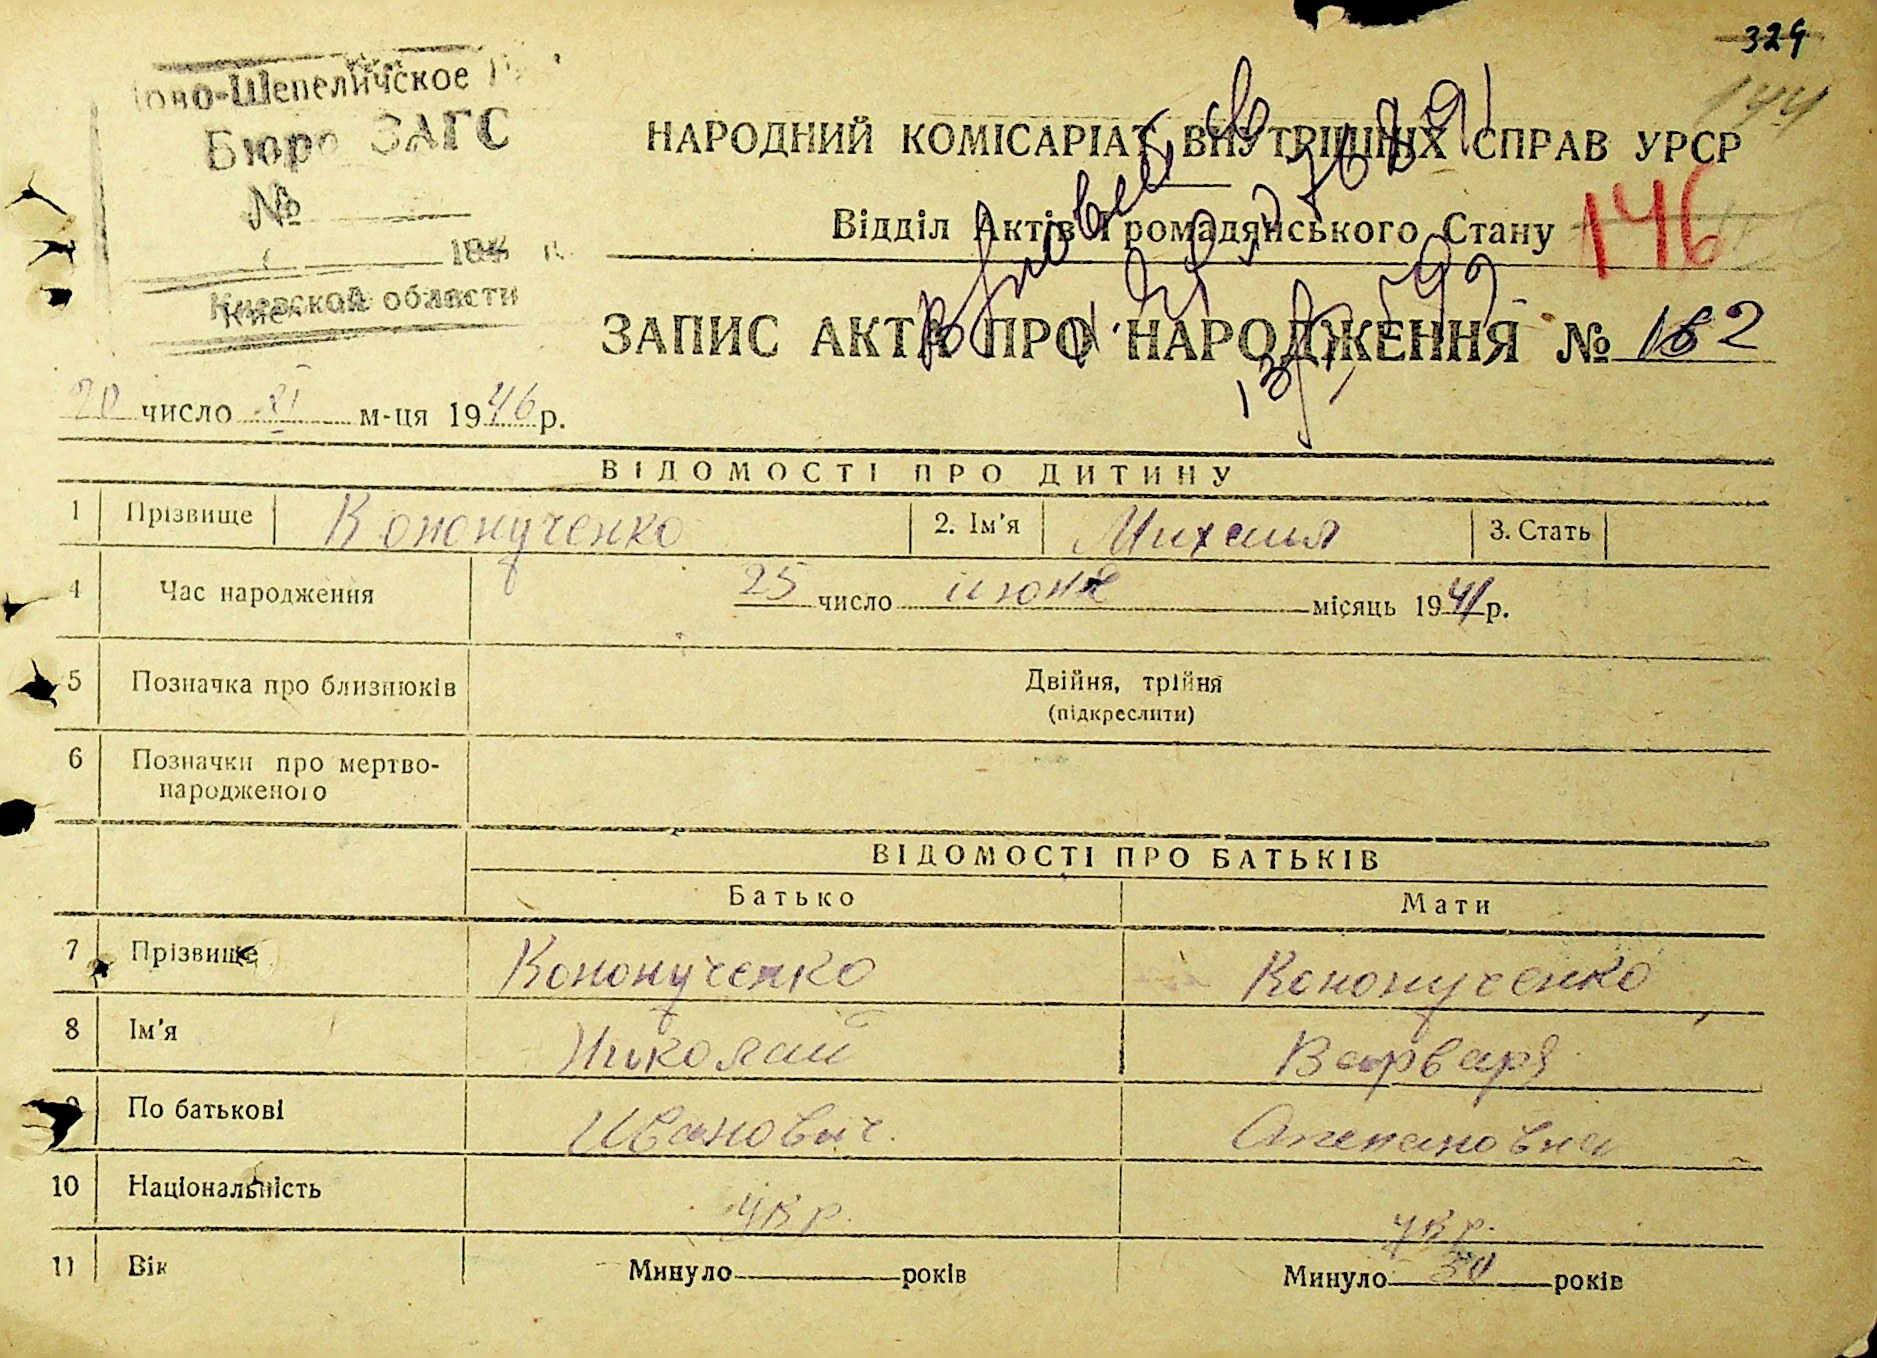 329
144
Ново-Шепеличское
Бюро ЗАГС
№
194 г.
Киевской области
НАРОДНИЙ КОМІСАРІАТ ВНУТРІШНІХ СПРАВ УРСР
Відділ Актів Громадянського Стану
146
ЗАПИС АКТА ПРО НАРОДЖЕННЯ № 162
20 число XI м-ця 1946 р.
ВІДОМОСТІ ПРО ДИТИНУ
1 Прізвище Кононученко 2. Ім'я Михаил 3. Стать
4 Час народження 25 число июня місяць 1941 р.
5 Позначка про близнюків Двійня, трійня
(підкреслити)
6 Позначки про мертво-
народженого
ВІДОМОСТІ ПРО БАТЬКІВ
Батько Мати
7 Прізвище Кононученко Кононученко
8 Ім'я Николай Варвара
9 По батькові Иванович Степановна
10 Національність укр. укр.
11 Вік Минуло років Минуло 30 років